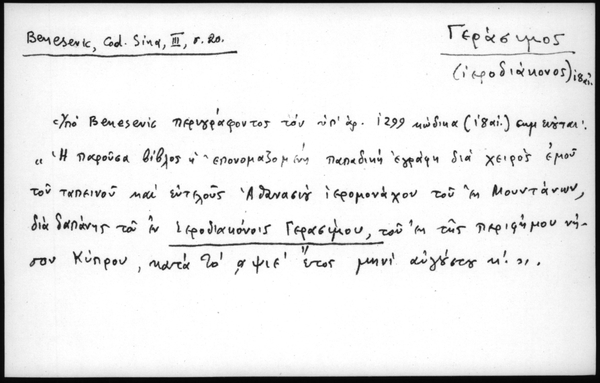 Benesevic, Cod. Sina, III, σ. 20.
Γεράσιμος
(ἱεροδιάκονος) ι8αἰ.
Ὑπό Benesevic περιγράφοντος τόν ὑπ' ἀρ. 1299 κώδικα (ι8αἰ.) σημειοῦται:
"Ἡ παροῦσα βίβλος ἡ ἐπονομαζομένη παπαδική ἐγράφη διά χειρός ἐμοῦ
τοῦ ταπεινοῦ καί εὐτελοῦς Ἀθανασίου ἱερομονάχου τοῦ ἐκ Μουντάνων,
διά δαπάνης τοῦ ἐν ἱεροδιακόνοις Γερασίμου, τοῦ ἐκ τῆς περιφήμου νή-
σου Κύπρου, κατά τό ͵αψιε' ἔτος μηνί αὐγούστῳ κ'.".